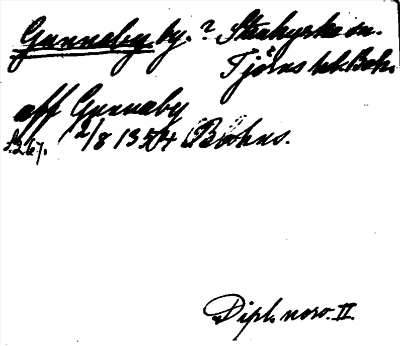 Gunnaby. by. ? Stenkyrka sn.
Tjörns hd. Boh.
aff Gunnaby
2/8 1354 Bohus.
S. 267.
Dipl. norv. II.